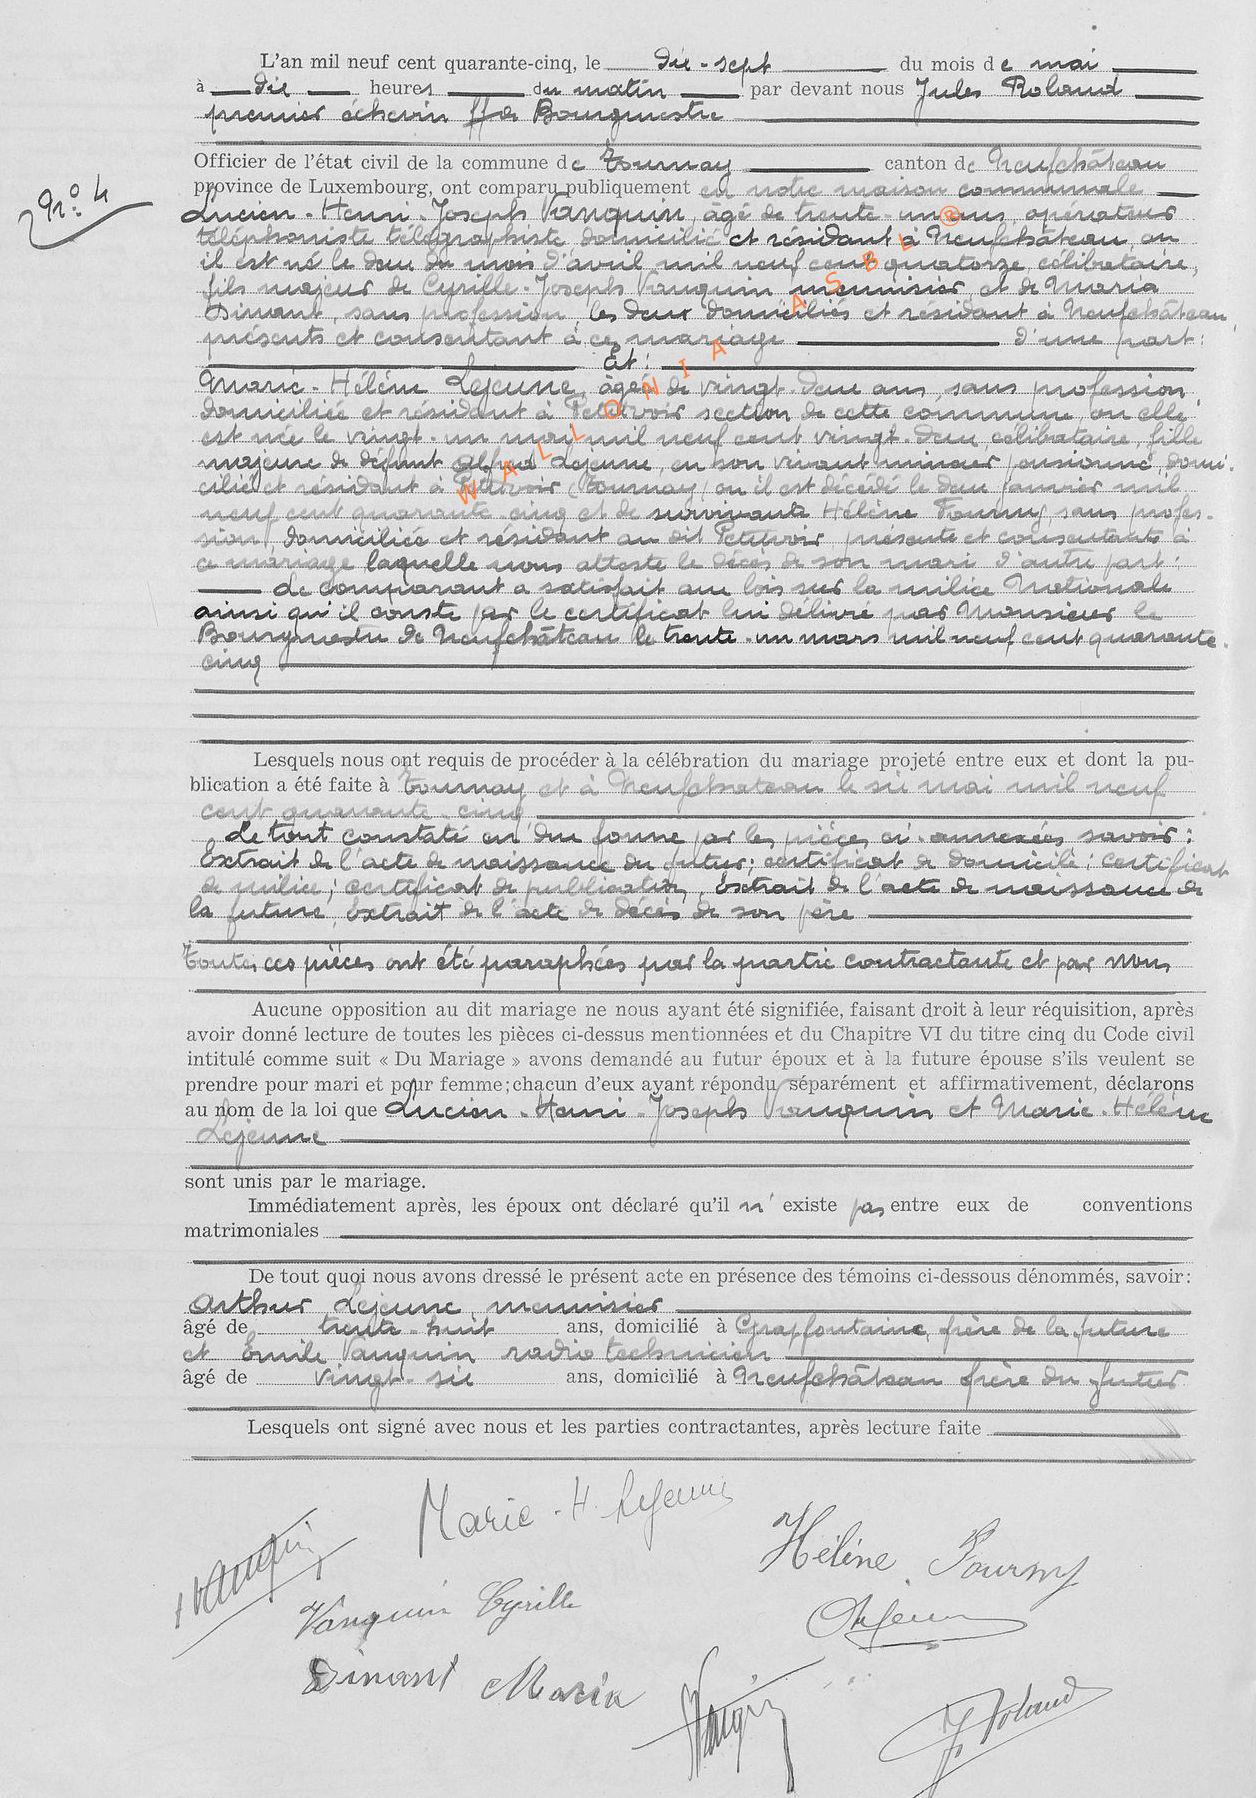 L'an mil neuf cent quarante-cinq, le dix-sept du mois de mai
à dix heures du matin par devant nous Jules Roland
premier échevin ff de Bourgmestre
Officier de l'état civil de la commune de Tournay canton de Neufchâteau
province de Luxembourg, ont comparu publiquement en notre maison communale
N° 4
Lucien-Henri-Joseph Vanquin, âgé de trente-un ans, opérateur
téléphoniste télégraphiste domicilié et résidant à Neufchâteau, où
il est né le deux du mois d'avril mil neuf cent quatorze, célibataire,
fils majeur de Cyrille-Joseph Vanquin menuisier, et de Maria
Dinant, sans profession, les deux domiciliés et résidant à Neufchâteau,
présents et consentant à ce mariage d'une part:
Et:
Marie-Hélène Lejeune, âgée de vingt-deux ans, sans profession,
domiciliée et résidant à Petitvoir section de cette commune, où elle
est née le vingt-un mai mil neuf cent vingt-deux célibataire, fille
majeure de défunt Alfred Lejeune, en son vivant mineur pensionné, domi-
cilié et résidant à Petitvoir (Tournay) où il est décédé le deux janvier mil
neuf cent quarante-cinq et de survivante Hélène Fourny, sans profes-
sion, domiciliée et résidant au dit Petitvoir présente et consentante à
ce mariage laquelle nous atteste le décès de son mari d'autre part:
Le comparant a satisfait aux lois sur la milice Nationale
ainsi qu'il conste par le certificat lui délivré par Monsieur le
Bourgmestre de Neufchâteau le trente-un mars mil neuf cent quarante-
cinq
Lesquels nous ont requis de procéder à la célébration du mariage projeté entre eux et dont la pu-
blication a été faite à Tournay et à Neufchâteau le six mai mil neuf
cent quarante-cinq
Le tout constaté en due forme par les pièces ci-annexées savoir:
Extrait de l'acte de naissance du futur; certificat de domicile; certificat
de milice; certificat de publication, Extrait de l'acte de naissance de
la future, Extrait de l'acte de décès de son père
Toutes ces pièces ont été paraphées par la partie contractante et par nous
Aucune opposition au dit mariage ne nous ayant été signifiée, faisant droit à leur réquisition, après
avoir donné lecture de toutes les pièces ci-dessus mentionnées et du Chapitre VI du titre cinq du Code civil
intitulé comme suit « Du Mariage » avons demandé au futur époux et à la future épouse s'ils veulent se
prendre pour mari et pour femme; chacun d'eux ayant répondu séparément et affirmativement, déclarons
au nom de la loi que Lucien-Henri-Joseph Vanquin et Marie-Hélène
Lejeune
sont unis par le mariage.
Immédiatement après, les époux ont déclaré qu'il n' existe pas entre eux de conventions
matrimoniales
De tout quoi nous avons dressé le présent acte en présence des témoins ci-dessous dénommés, savoir:
Arthur Lejeune, menuisier
âgé de trente-huit ans, domicilié à Grapfontaine, frère de la future
et Emile Vanquin radio technicien
âgé de vingt-six ans, domicilié à Neufchâteau frère du futur
Lesquels ont signé avec nous et les parties contractantes, après lecture faite
WALLONIA ASBL ®
Marie-H. Lejeune
Vanquin
Hélène Fourny
Vanquin Cyrille
Lejeune
Dinant Maria
Vanquin
J. Roland